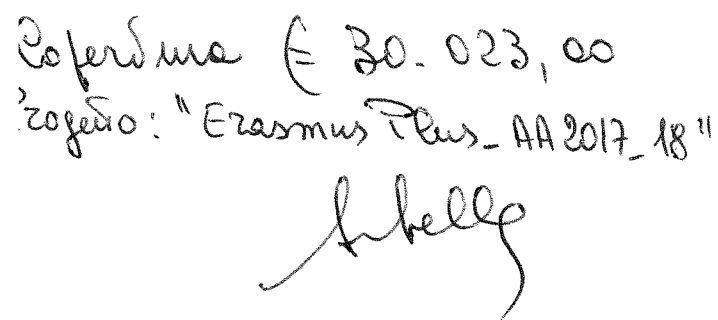 Copertura € 30.023,00
Progetto: "Erasmus Plus_AA2017_18"